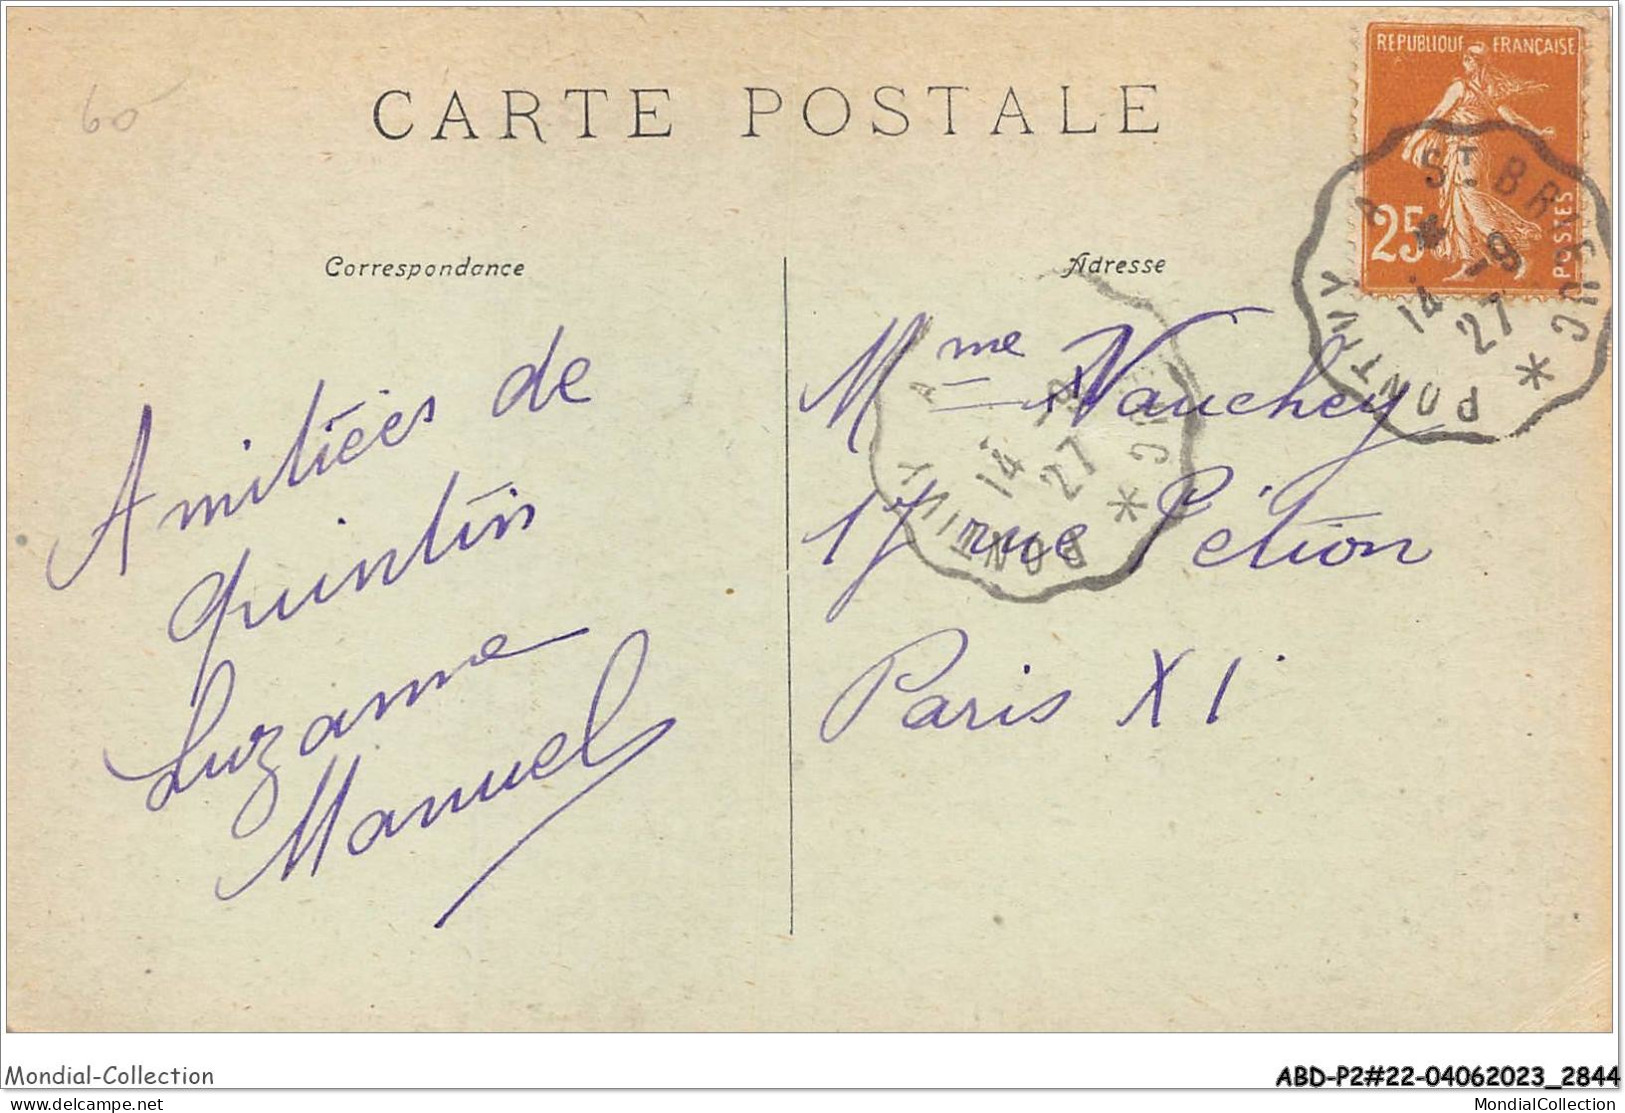 60
CARTE POSTALE
REPUBLIQUE FRANÇAISE
25
POSTES
PONTIVY A ST BRIEUC
14 -9
27
Correspondance
Adresse
Amitiées de
Quintin
Suzanne
Manuel
Mme Vauchey
17 rue Pétion
Paris XI
PONTIVY A
14 -9
27
Mondial-Collection
ABD-P2#22-04062023_2844
delcampe.net
MondialCollection